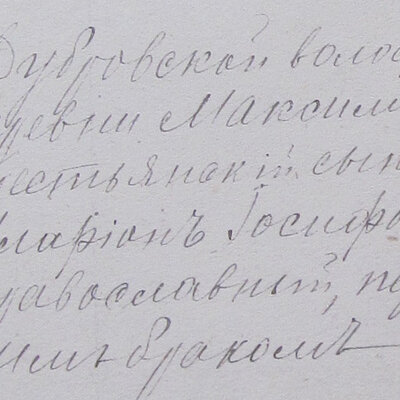 Дубровской волос
ревни Максим
рестьянскій сынъ
ларіонъ Іосифо
равославный, пе
ымъ бракомъ